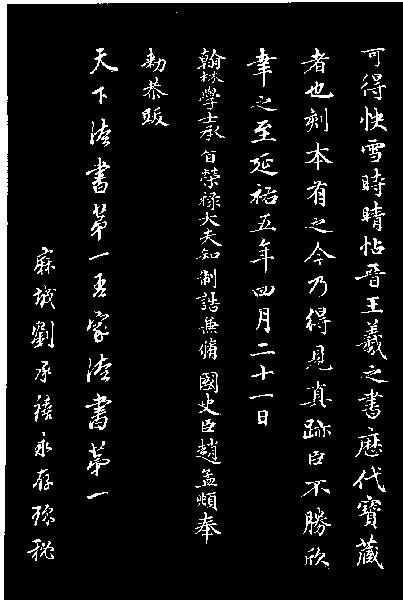 可得快雪時晴帖晉王羲之書歷代寶藏
者也刻本有之今乃得見真跡臣不勝欣
幸之至延祐五年四月二十一日
翰林學士承旨榮祿大夫知制誥兼脩國史臣趙孟頫奉
勑恭跋
天下法書第一吾家法書第一
麻城劉承禧永存珎秘